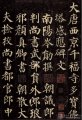 大唐西京千福寺多
寶塔感應碑文
南陽岑勛撰朝議郎
判尚書武部員外郎琅
邪顏真卿書朝散
大夫撿校尚書都官郎中